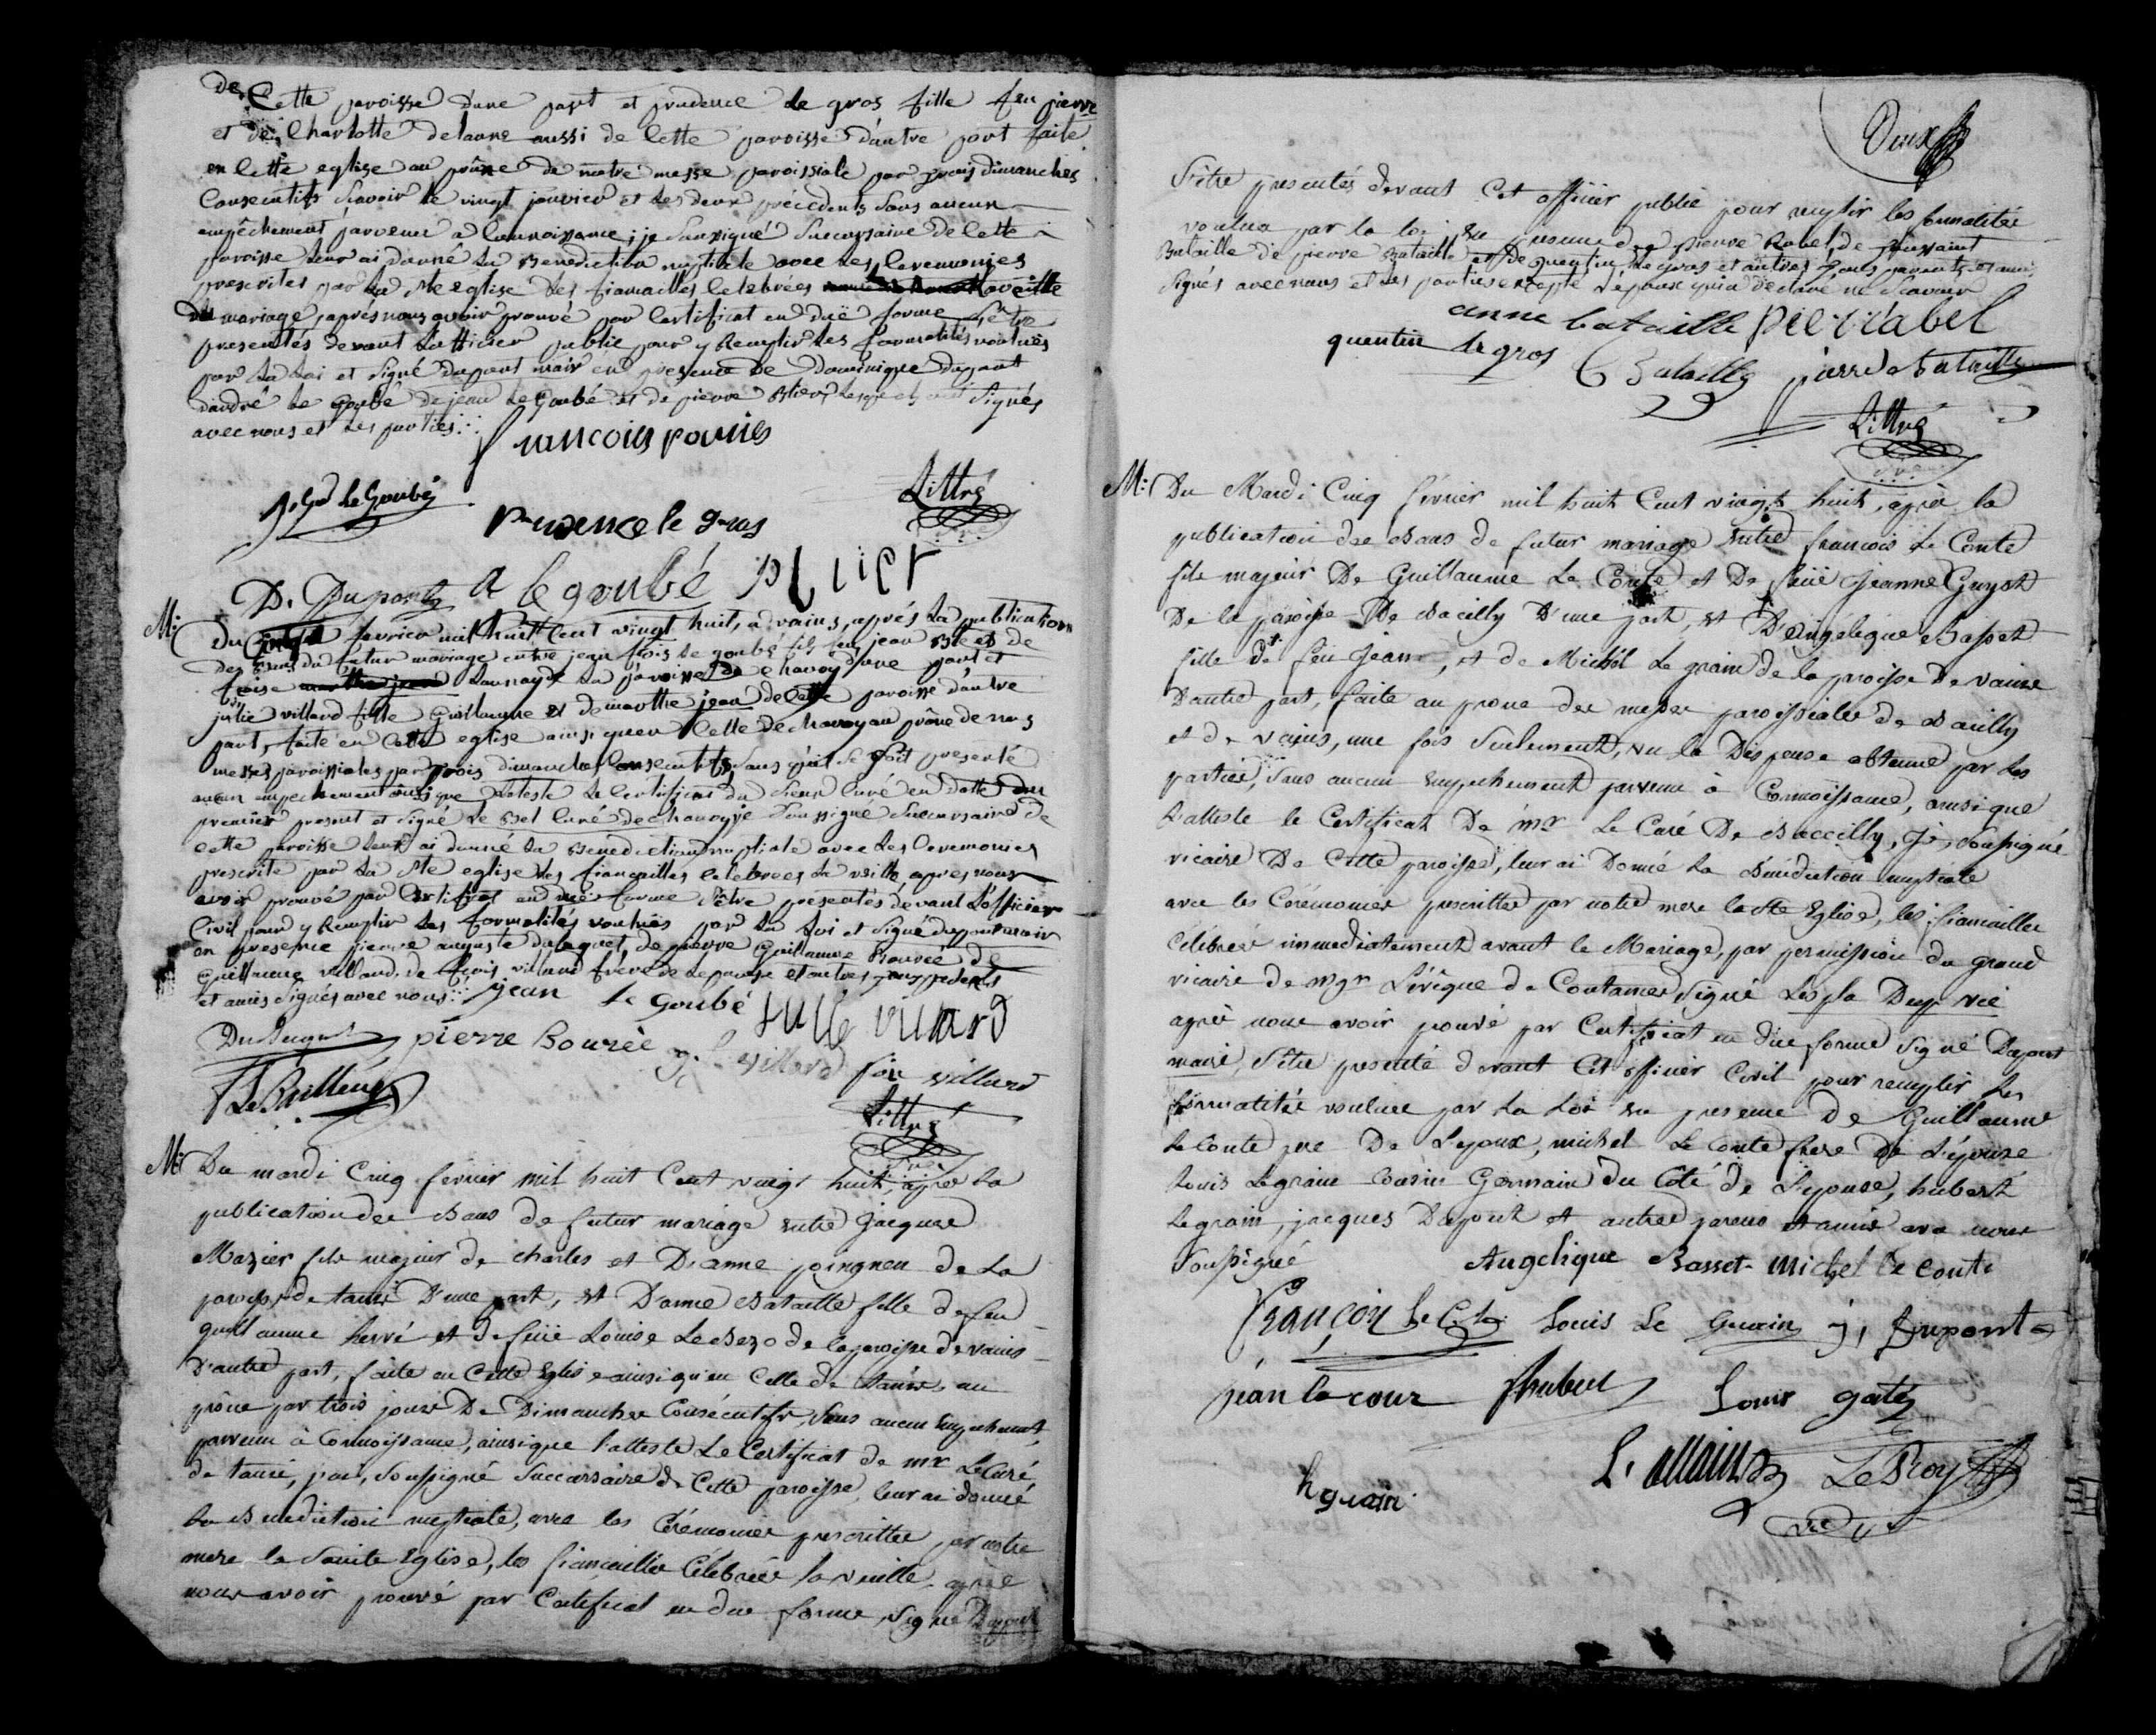 de Cette paroisse d'une part et prudence le gros fille feu pierre
et de Charlotte delaune aussi de Cette paroisse d'autre part faite
en Cette eglise au prône de nôtre messe paroissiale par trois dimanches
Consecutifs Scavoir le vingt janvier et les deux précédents Sans aucun
empêchement parvenu a Connoissance; je Soussigné Succursaire de Cette
paroisse leur ai donné la Benediction nuptiale avec les Ceremonies
prescrites par la Ste eglise les fiancailles Celebrées la veille
du mariage, après nous avoir prouvé par Certificat en duë forme S'être
presentés devant L'officier public pour y Remplir les formalités vouluës
par la Loi et Signé dupont mair en presence de Dominique dupont
d'andré le Goubé de jean Le Goubé et de pierre Blier, Signés
avec nous et les parties
francois
le Goubey
Littré
Prudence le gros
D. Dupont a le goubé
M: Du fevrier mil huit Cent vingt huit, a vains, après la publication
des Bans du futur mariage entre jean frois le goubé fils feu jean et de
froise Launay de la paroisse de Chavoy d'une part et
julie villard fille Guillaume et de marthe jean de Cette paroisse d'autre
part, faite en Cette eglise ainsi qu'en Celle de Chavoy au prône de nos
messes paroissiales par trois dimanches Consecutifs, Sans qu'il Se Soit presenté
aucun empechement ainsi que L'ateste Le Certificat du Sieur Curé en datte du
premier present et Signé Le Bel Curé de Chavoy, je Soussigné Succursaire de
Cette paroisse leur ai donné la Benediction nuptiale avec les Ceremonies
prescrite par la Ste eglise les fiançailles Celebrees la veille, après nous
avoir prouvé par Certificat en duë forme S'être présentés devant L'officier
Civil pour y Remplir les formalités vouluës par la Loi et Signé dupont mair
en presence pierre auguste dubuquet, de pierre Guillaume Bourée de
Guillaume villard, de frois villard frère de L'epouse et autres
et amis Signés avec nous jean le Goubé julie vilard
pierre Bourée villard villard
Littré
M: Du mardi Cinq fevrier mil huit Cent vingt huit, après la
publication des Bans de futur mariage entre Jacques
Mazier fils majeur de charles et D'anne poingneu de la
paroisse de tanis D'une part, et D'anne Bataille fille de feu
guillaume hervé et de feüe Louise de la paroisse de vains
D'autre part, faite en Cette Eglise ainsi qu'en Celle de tanis, au
prône par trois jours De Dimanches Consécutifs, Sans aucun Empechement
parvenu à Connoissance, ainsi que l'atteste Le Certificat de mr Le Curé
de tanis, je, Soussigné Succursaire de Cette paroisse, leur ai donné
la Benediction nuptiale, avec les Cérémonies prescrittes par notre
mere la Sainte Eglise, les fiancailles Célébrées la veille, après
nous avoir prouvé par Certificat en due forme, Signé Dupont
Deux
S'être presentés devant Cet officier public pour remplir les formalités
voulues par la loi, En presence de pierre Rabel, de toussaint
Bataille de pierre Bataille et de quentin Le gros et autres, tous parents et amis
Signés avec nous et les parties excepté L'epoux qui a déclaré ne Scavoir
anne bataille
quentin le gros Bataille pierre Bataille
Littré
M: Du Mardi Cinq fevrier mil huit Cent vingt huit, après la
publication des Bans de futur mariage Entre francois Le Conte
fils majeur De Guillaume Le Conte et De feüe Jeanne Guyot
De la paroisse De Bacilly D'une part, et D'Angélique Basset
fille de feu Jean, et de Michel Le grain de la paroisse De vains
D'autre part, faite au prone des messes paroissiales de Bacilly
et de vains, une fois Seulement, vu la Dispense obtenue par les
parties, Sans aucun Empechement parvenu à Connoissance, ainsi que
L'atteste le Certificat De mr Le Curé De Baccilly, Je, Soussigné
vicaire De Cette paroisse, leur ai Donné la Bénédiction nuptiale
avec les Cérémonies prescrittes par notre mere la Ste Eglise, les fiancailles
Célébrées immediatement avant le Mariage, par permission du grand
vicaire de mgr L'évêque de Coutances Signé
après nous avoir prouvé par Certificat en due forme Signé Dupont
maire, S'être presenté devant Cet officier Civil pour remplir les
formalités voulues par la Loi en presence De Guillaume
Le Conte pere De L'epoux, michel Le Conte frere De L'épouse
Louis Legrain Cousin Germain Du Côté de L'epouse, hubert
Legrain, jacques Dupont et autres parens et amis avec nous
Soussigné Angelique Basset Michel le conte
François le Louis Le Grain j, Dupont
jean la cour Louis
L. allain Le Roy
h grain vic